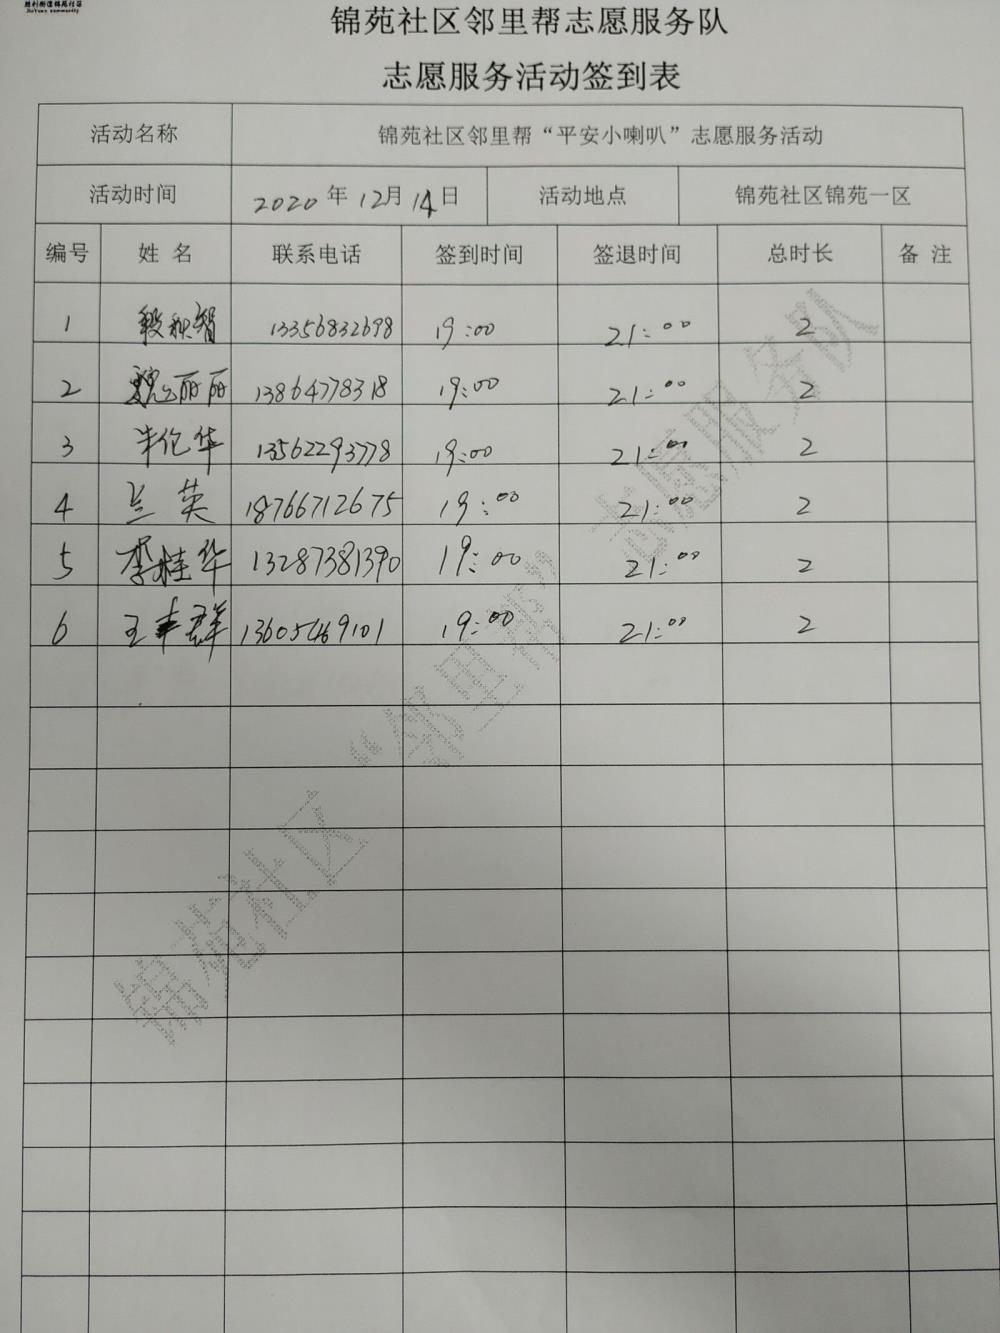 胜利街道锦苑社区
JinYuan community
锦苑社区邻里帮志愿服务队
志愿服务活动签到表
活动名称 锦苑社区邻里帮“平安小喇叭”志愿服务活动
活动时间 2020年12月14日 活动地点 锦苑社区锦苑一区
编号 姓 名 联系电话 签到时间 签退时间 总时长 备 注
1 13356832698 19:00 21:00 2
2 魏丽丽 13864778318 19:00 21:00 2
3 华 13562293778 19:00 21:00 2
4 兰英 18766712675 19:00 21:00 2
5 李桂华 13287381390 19:00 21:00 2
6 王丰群 13605469101 19:00 21:00 2
锦苑社区“邻里帮”志愿服务队